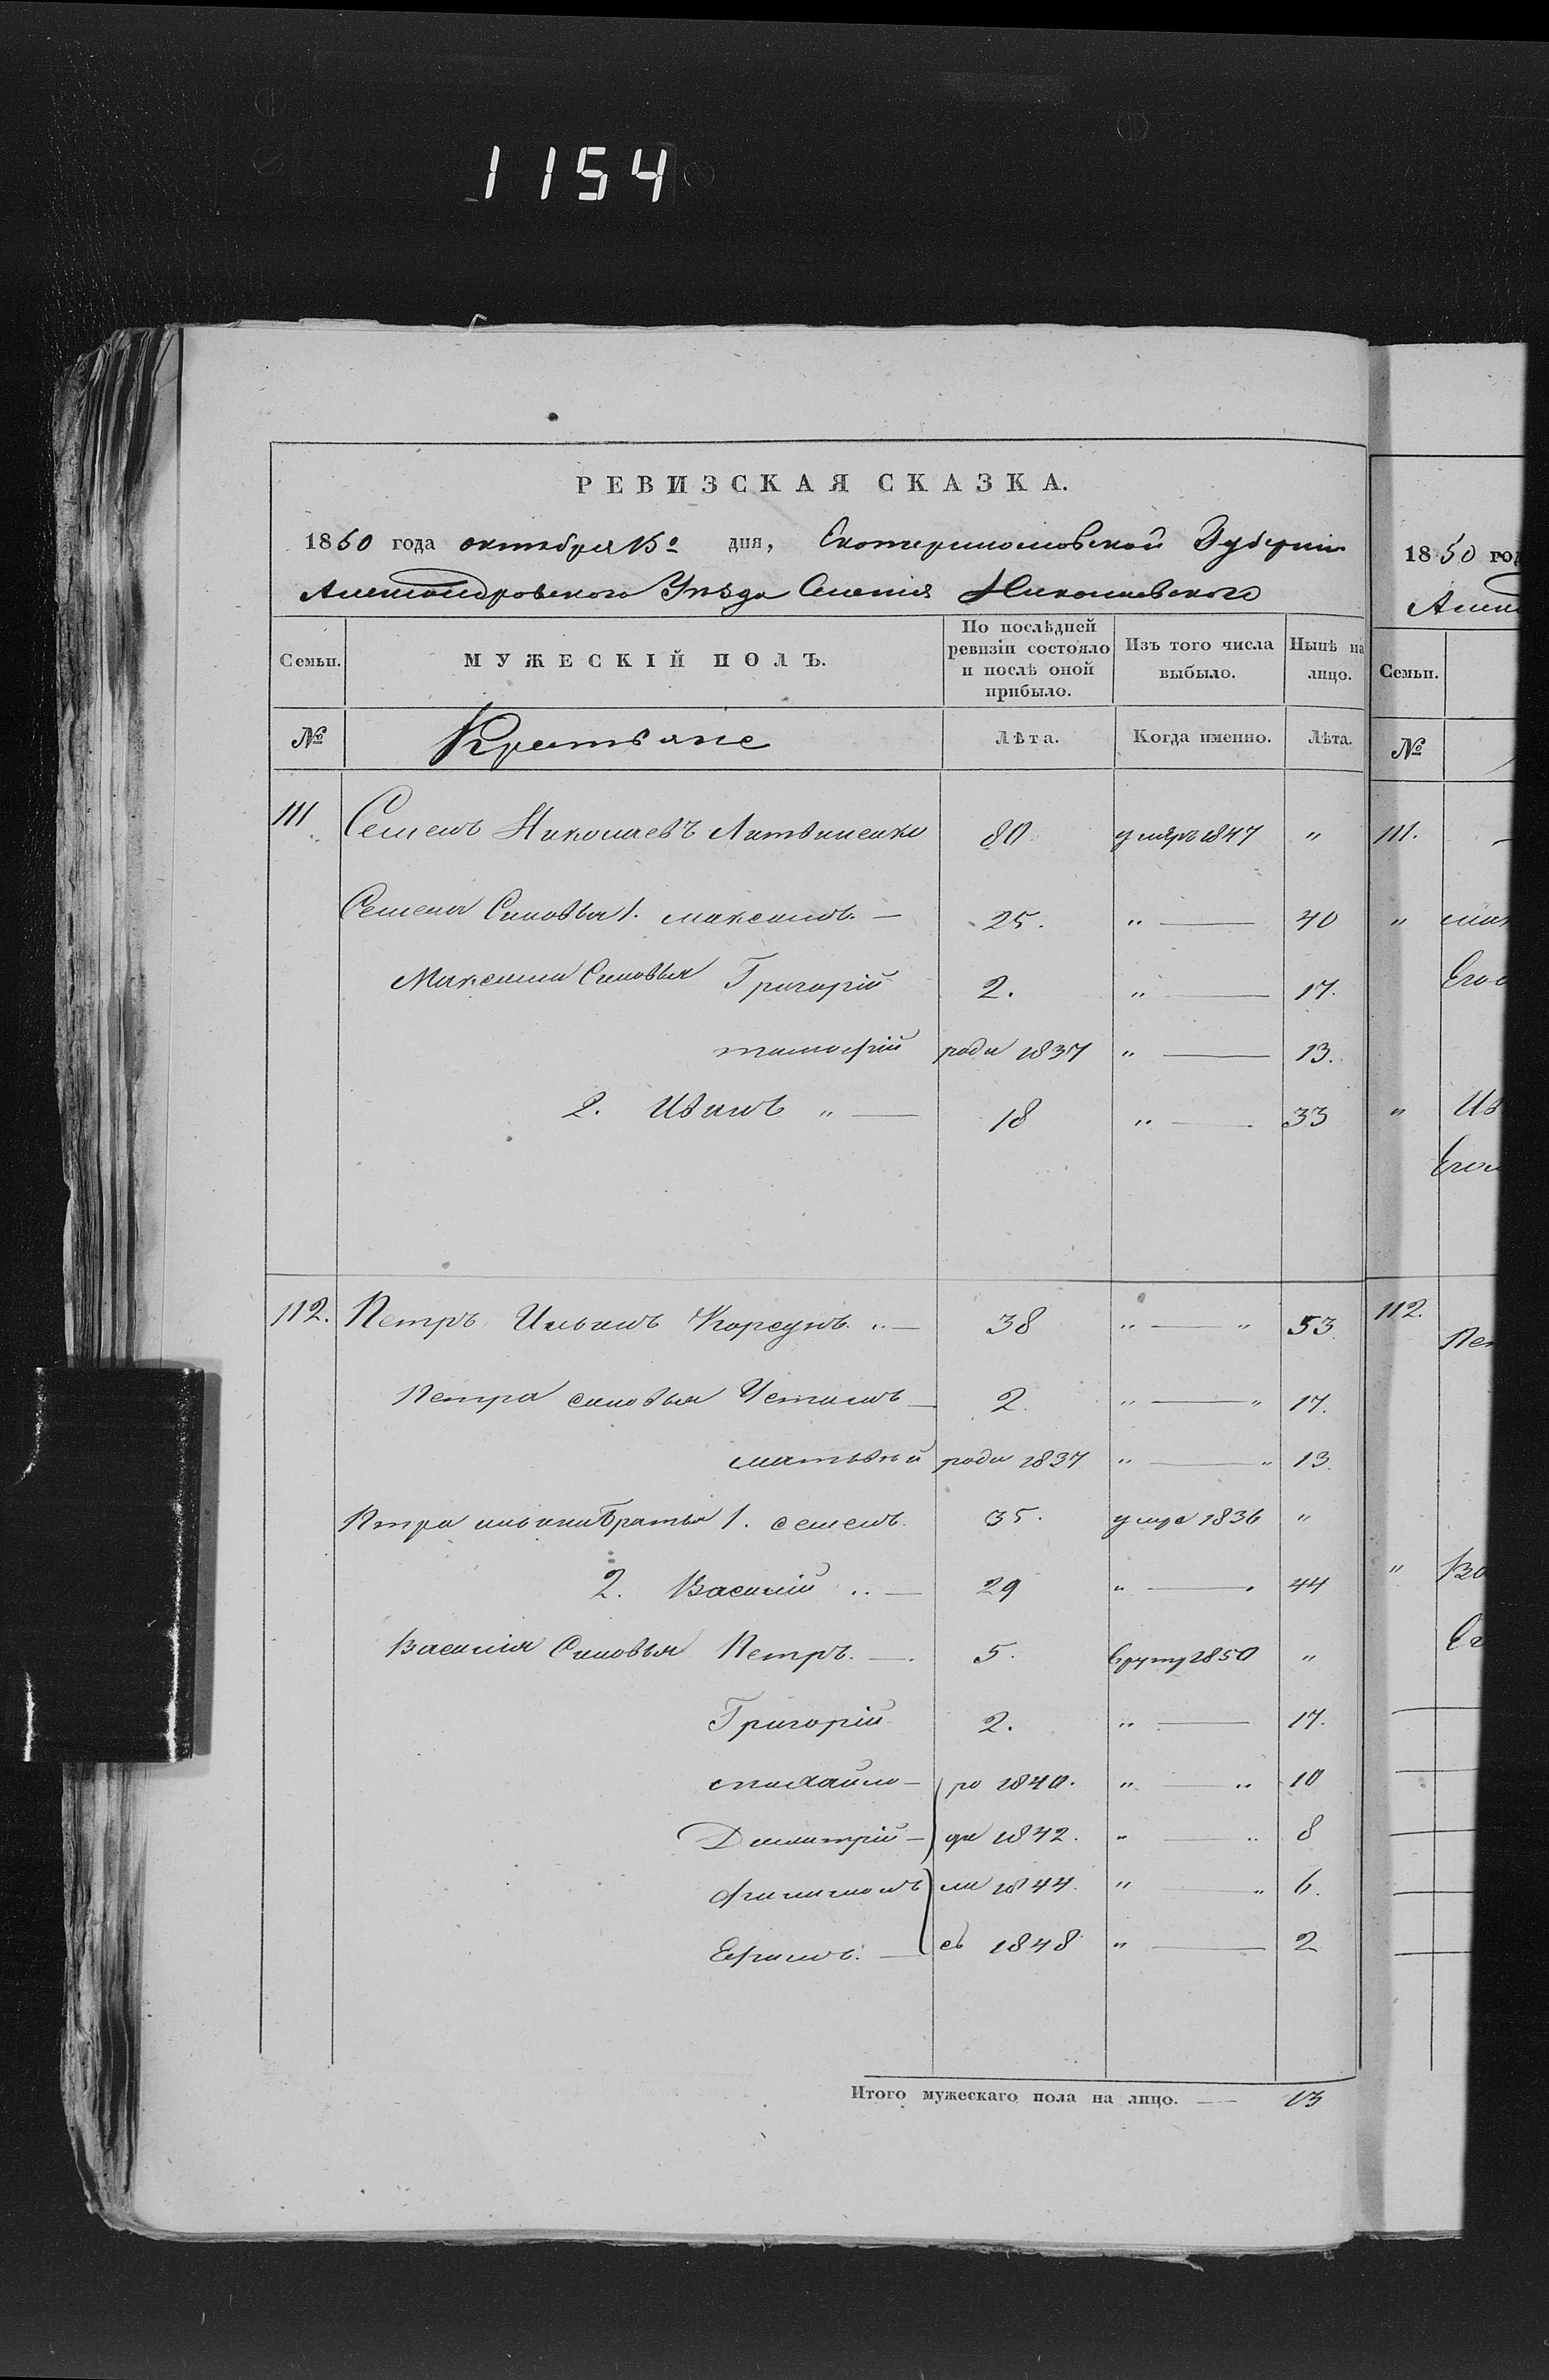 1154
РЕВИЗСКАЯ СКАЗКА.
1850 года октября 15º дня, Екатеринославской Губернии
Александровского Уезда Селения Николаевского
Семьи. МУЖЕСКІЙ ПОЛЪ. По послѣдней ревизіи состояло и послѣ оной прибыло. Изъ того числа выбыло. Нынѣ на лицо.
№ Крестьяне Лѣта. Когда именно. Лѣта.
111 Семенъ Николаевъ Литвиненко 80 умеръ 1847 "
Семена Синовья 1. максимъ — 25. " — 40
Максима Синовья Григорій 2. " — 17.
тимофій роди 1837 " — 13.
2. Иванъ " — 18 " — 33
112. Петръ Ильинъ Корсунъ " — 38 " — " 53
Петра синовья Устимъ — 2. " — " 17.
матвѣй роди 1837 " — " 13
Петра ильина Братья 1. семенъ 35. умре 1836 "
2. Василій " — 29 " — 44
Василія Синовья Петръ. — 5. 1850 "
Григорій 2. " — 17.
михайло — ро 1840. " — " 10
Димитрій — ди 1842. " — " 8
филимонъ ли 1844. " — " 6.
Ефимъ. — сь 1848 " — 2
Итого мужескаго пола на лицо. — — 13
1850 год
Семьи.
№
111.
"
"
112.
"